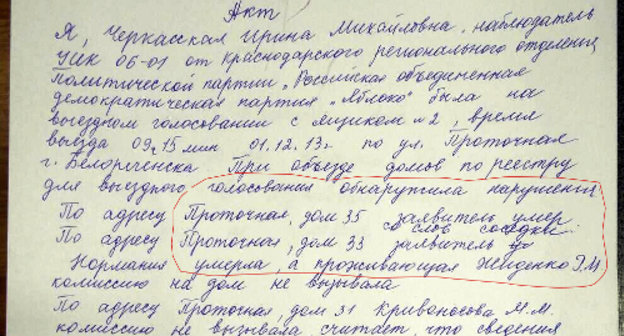 Акт
Я, Черкасская Ирина Михайловна, наблюдатель
УИК 06-01 от Краснодарского регионального отделения
Политической партии "Российская объединенная
демократическая партия "Яблоко" была на
выездном голосовании с ящиком №2, время
выезда 09,15 мин 01.12.13г. по ул. Проточная
г. Белореченска При объезде домов по реестру
для выездного голосования обнаружила нарушения
По адресу Проточная, дом 35 заявитель умер
со слов соседки.
По адресу Проточная, дом 33 заявитель
умерла, а проживающая Жиденко Э.М
комиссию на дом не вызывала
По адресу Проточная, дом 31 Кривоносова М.М.
комиссию не вызывала считает, что сведения